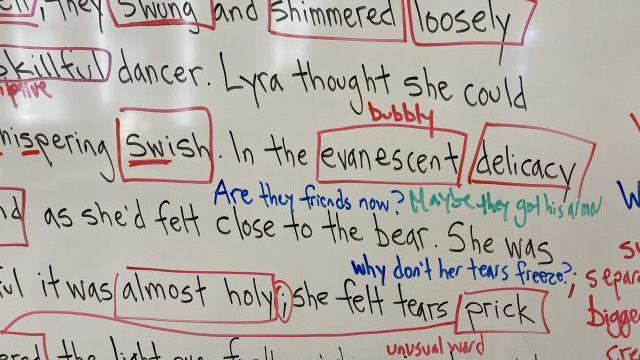 they swung and shimmered loosely
skillful dancer. Lyra thought she could
bubbly
whispering swish. In the evanescent delicacy
Are they friends now? Maybe they got his armor
as she'd felt close to the bear. She was
why don't her tears freeze?
it was almost holy; she felt tears prick
; separ
bigge
unusual word
the light